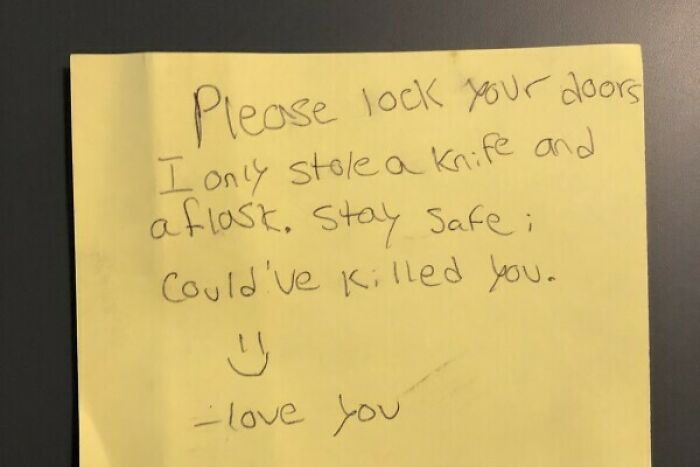 Please lock your doors
I only stole a knife and
a flask. Stay safe i
Could've killed you.
:)
-love you